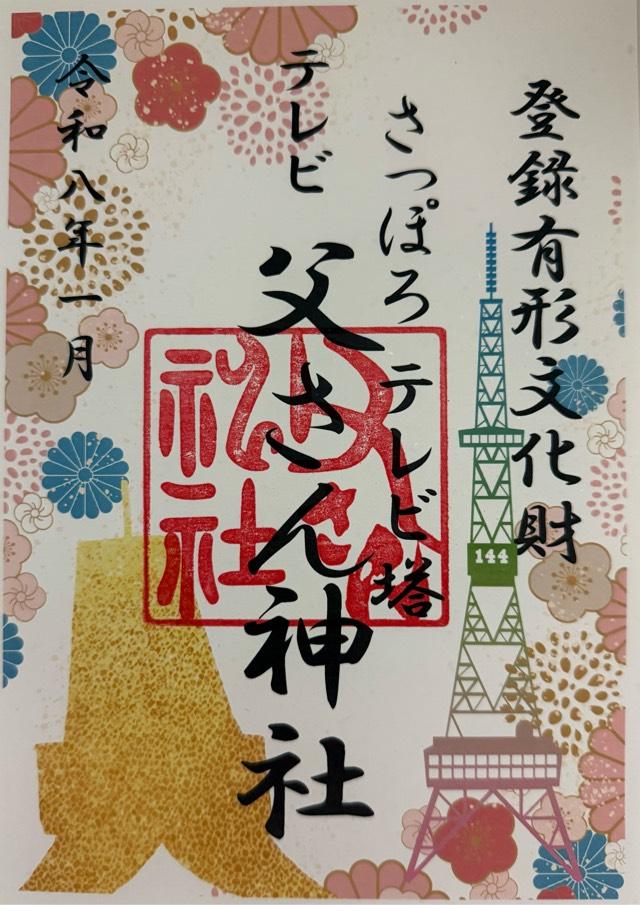 登録有形文化財
さっぽろテレビ塔
テレビ
父さん神社
令和八年一月
父さん
神社
144